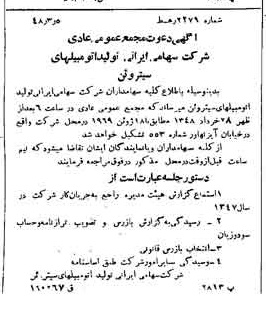 شماره ۲۲۷۹ر‌هـ‌ط ۴۸ر۳ر۵
آگهی دعوت مجمع عمومی عادی
شرکت سهامی ایرانی تولید اتومبیلهای
سیتروئن
بدینوسیله باطلاع کلیه سهامداران شرکت سهامی ایرانی تولید
اتومبیلهای سیتروئن میرساند که مجمع عمومی عادی در ساعت ۶ بعد از
ظهر ۲۸ خرداد ۱۳۴۸ مطابق با ۱۸ ژوئن ۱۹۶۹ در محل شرکت واقع
در خیابان آیزنهاور شماره ۵۵۳ تشکیل خواهد شد
از کلیه سهامداران و یا نمایندگان ایشان تقاضا میشود که نیم
ساعت قبل از وقت در محل مذکور در فوق مراجعه فرمایند
دستور جلسه عبارت است از
۱ـ استماع گزارش هیئت مدیره راجع به جریان کار شرکت در
سال ۱۳۴۷
۲ ـ رسیدگی به گزارش بازرس و تصویب ترازنامه و حساب
سود و زیان
۳ـ انتخاب بازرس قانونی
۴ـ رسیدگی سایر امور شرکت طبق اساسنامه
شرکت سهامی ایرانی تولید اتومبیلهای سیتروئن
پ ۲۸۱۳ ق ۱۱۰۲۶۷